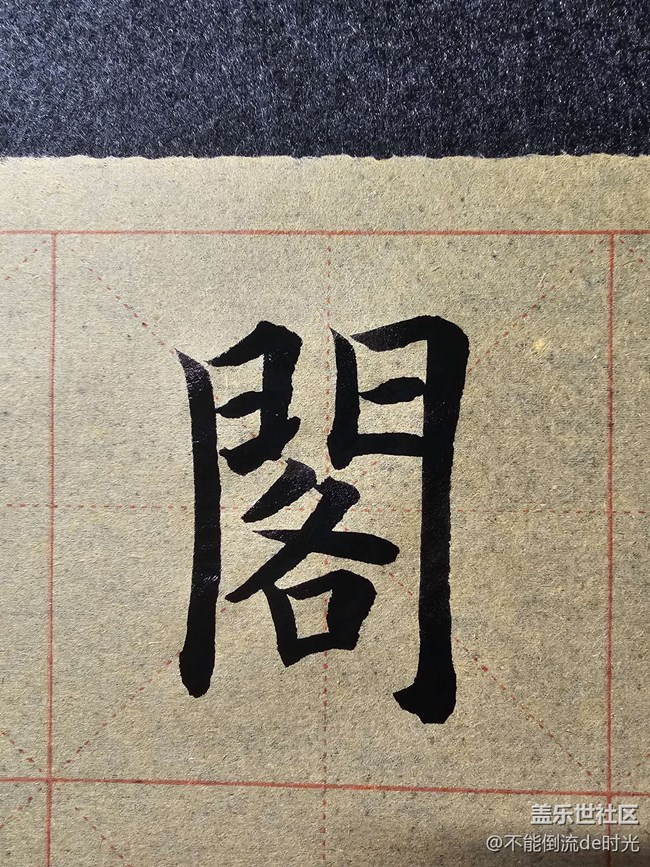 閣
盖乐世社区
@不能倒流de时光